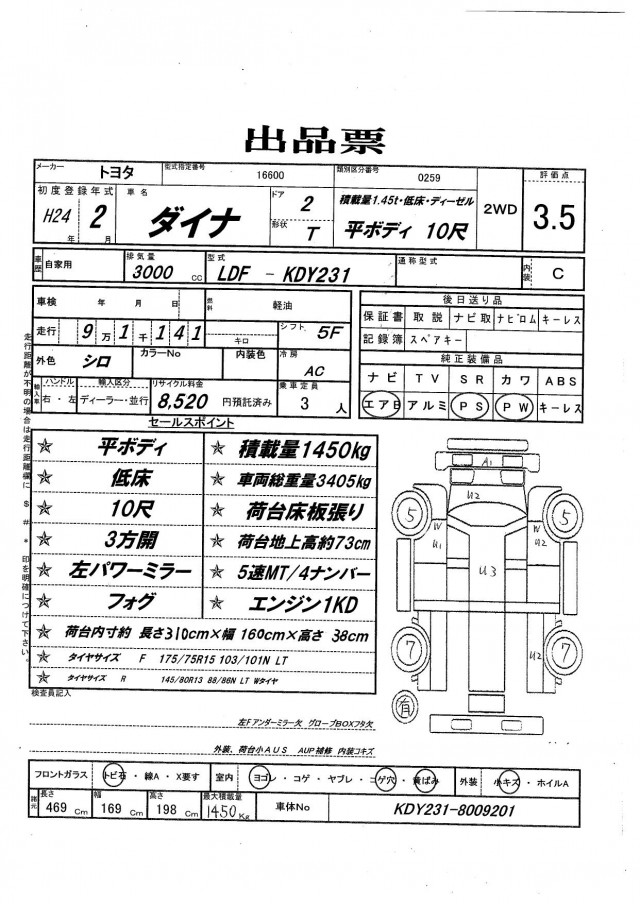 出品票
メーカー トヨタ 型式指定番号 16600 類別区分番号 0259 評価点
初度登録年式 車名 ドア 2 積載量1.45t・低床・ディーゼル 2WD 3.5
H24 年 2 月 ダイナ 形状 T 平ボディ 10尺
車歴 自家用 排気量 3000 CC 型式 LDF - KDY231 通称型式 内装 C
車検 年 月 日 燃料 軽油 後日送り品
走行 9万1千141 キロ シフト 5F 保証書 取説 ナビ取 ナビロム キーレス
記録簿 スペアキー
外色 シロ カラーNo 内装色 冷房 AC 純正装備品
ナビ TV SR カワ ABS
輸入車 ハンドル 右・左 輸入区分 ディーラー・並行 リサイクル料金 8,520 円預託済み 乗車定員 3 人 エアB アルミ PS PW キーレス
走行距離が不明の場合は走行距離欄に $ # * 印を明確につけて下さい。
セールスポイント
☆ 平ボディ ☆ 積載量1450kg
☆ 低床 ☆ 車両総重量3405kg
☆ 10尺 ☆ 荷台床板張り
☆ 3方開 ☆ 荷台地上高約73cm
☆ 左パワーミラー ☆ 5速MT/4ナンバー
☆ フォグ ☆ エンジン1KD
☆ 荷台内寸約 長さ310cm×幅 160cm×高さ 38cm
☆ タイヤサイズ F 175/75R15 103/101N LT
☆ タイヤサイズ R 145/80R13 88/86N LT Wタイヤ
A1
U2
5 W U1 W U2 5
U3
7 U2 7
有
検査員記入
左Fアンダーミラー欠 グローブBOXフタ欠
外装、荷台小AUS AUP補修 内装コキズ
フロントガラス トビ石・線A・X要す 室内 ヨゴレ・コゲ・ヤブレ・コゲ穴・黄ばみ 外装 小キズ・ホイルA
諸元 長さ 469 Cm 幅 169 cm 高さ 198 Cm 最大積載量 1450 Kg 車体No KDY231-8009201